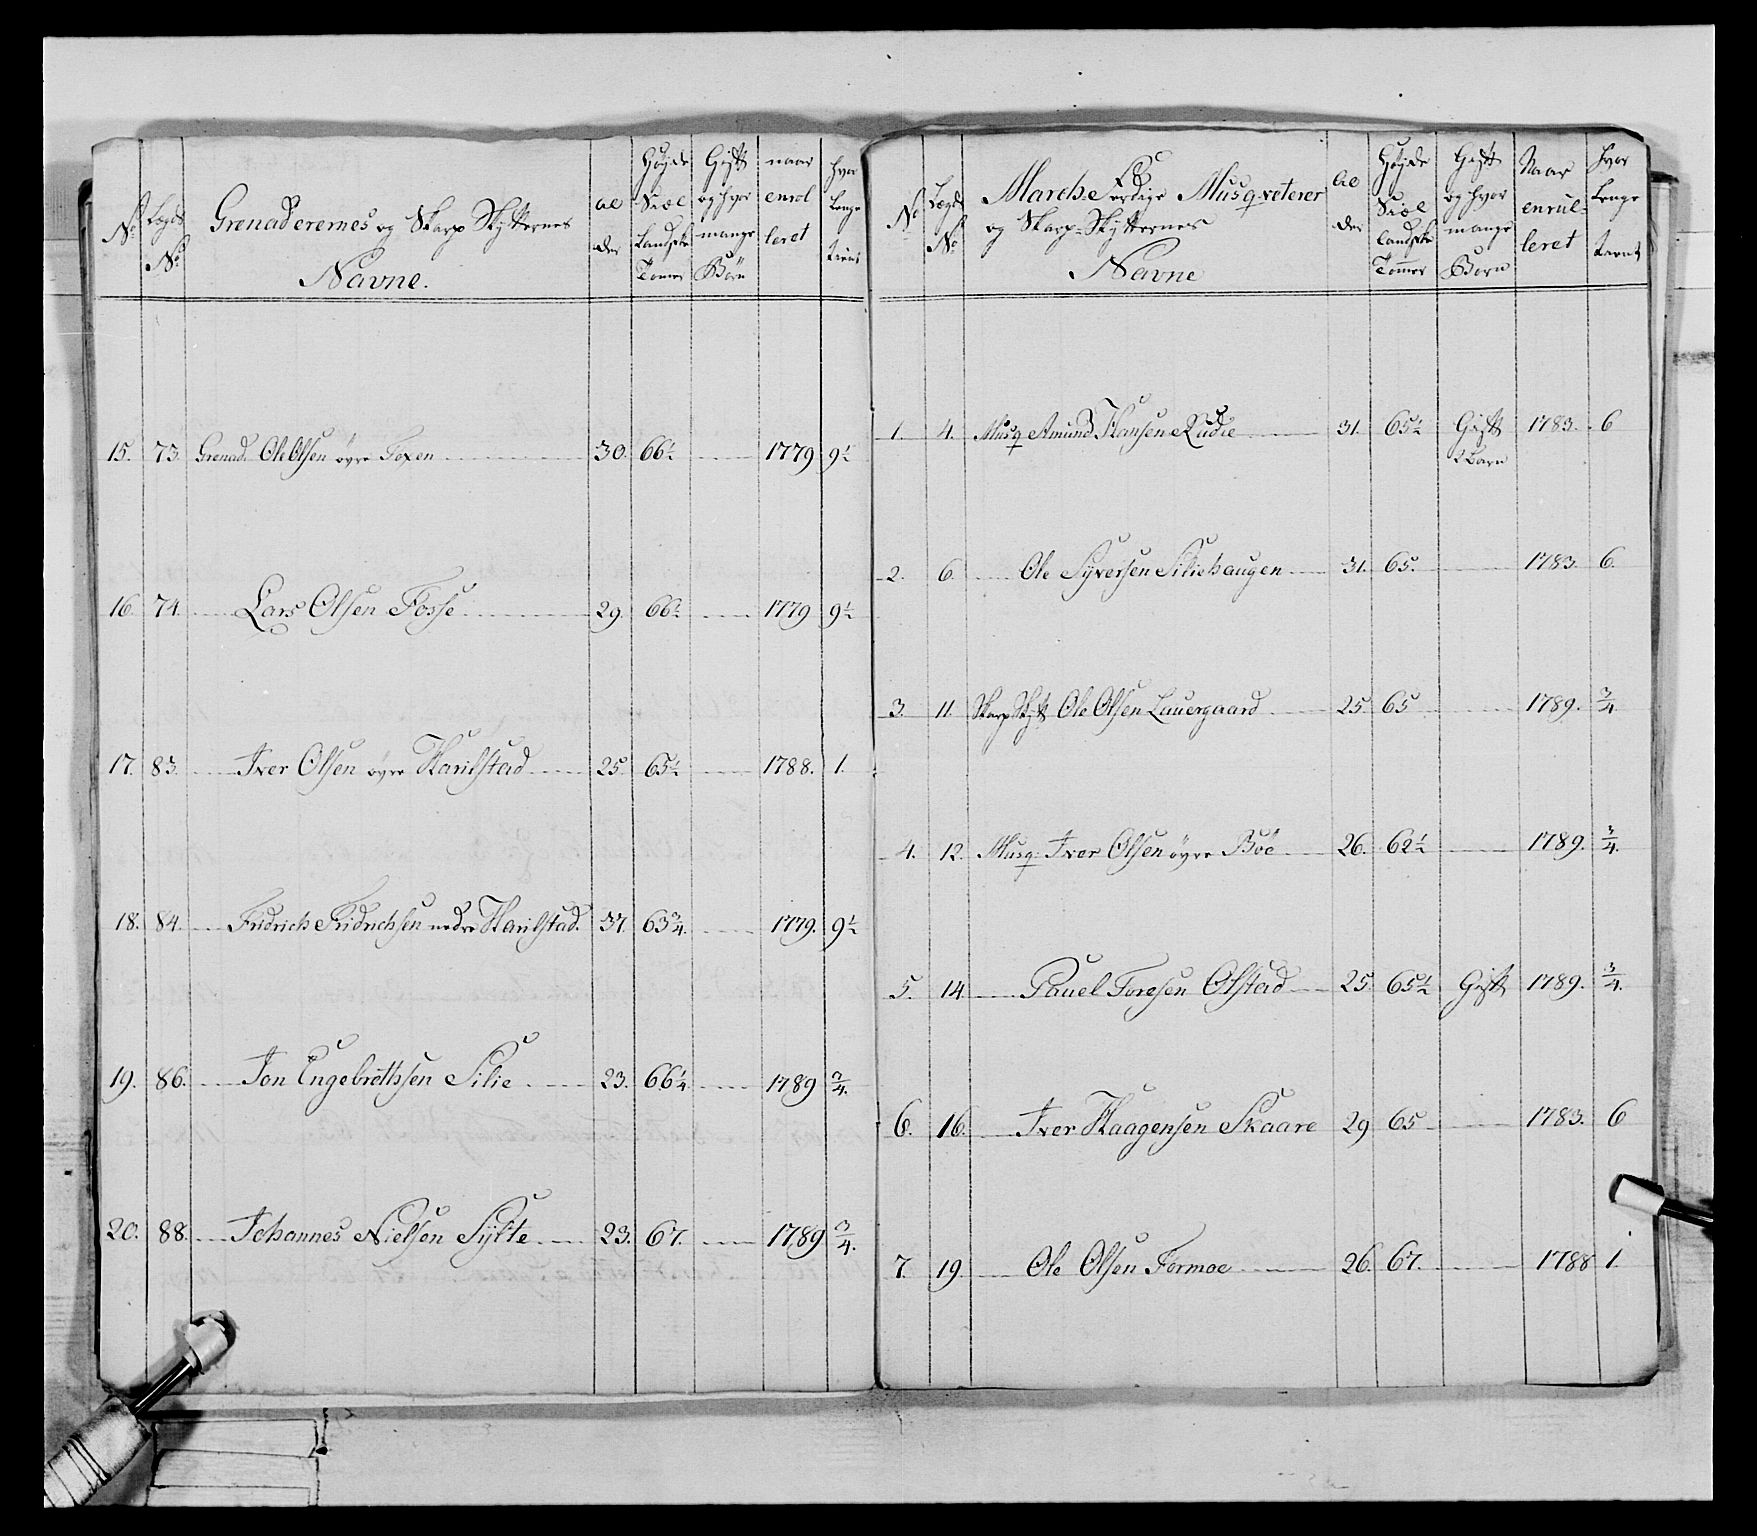 No
Lægds No
Grenaderernes og Skarp Skytternes
Navne.
al
der
Høyde
Siæl
landske
Tomer
Gift
og hvor
mange
Börn
naar
enrol
leret
hvor
længe
tient
15. 73. Grenad. Ole Olsen øvre Foxen 30. 66½ 1779 9½
16. 74. Lars Olsen Fosse 29. 66½ 1779 9½
17. 83. Iver Olsen øvre Harilstad 25. 65½ 1788. 1.
18. 84. Fridrich Fridrichsen nedre Harilstad. 37. 63¾. 1779. 9½
19. 86. Jon Engebrethsen Silie 23. 66¼ 1789 ¾.
20. 88. Johannes Nielsen Sylte 23. 67. 1789 ¾.
No
Lægds No
Marche Færdige Musqveterer
og Skarp-Skytternes
Navne
al
der
Høyde
Siæl
landske
Tomer
Gift
og hvor
mange
Børn
Naar
enrul-
leret
hvor
længe
tient
1. 4. Musq Amund Hansen Rudie 31. 65½ Gift 1783. 6
2 Barn
2. 6. Ole Syversen Siliehaugen 31. 65. 1783. 6.
3. 11. Skarp Skyt Ole Olsen Lauergaard 25. 65 1789. ¾
4. 12. Musq. Iver Olsen øvre Böe 26. 62½ 1789. ¾.
5. 14 Pauel Toresen Olstad 25. 65½ Gift 1789. ¾.
6. 16. Iver Haagensen Skaare 29 65 1783. 6
7. 19 Ole Olsen Formoe 26. 67. 1788 1.